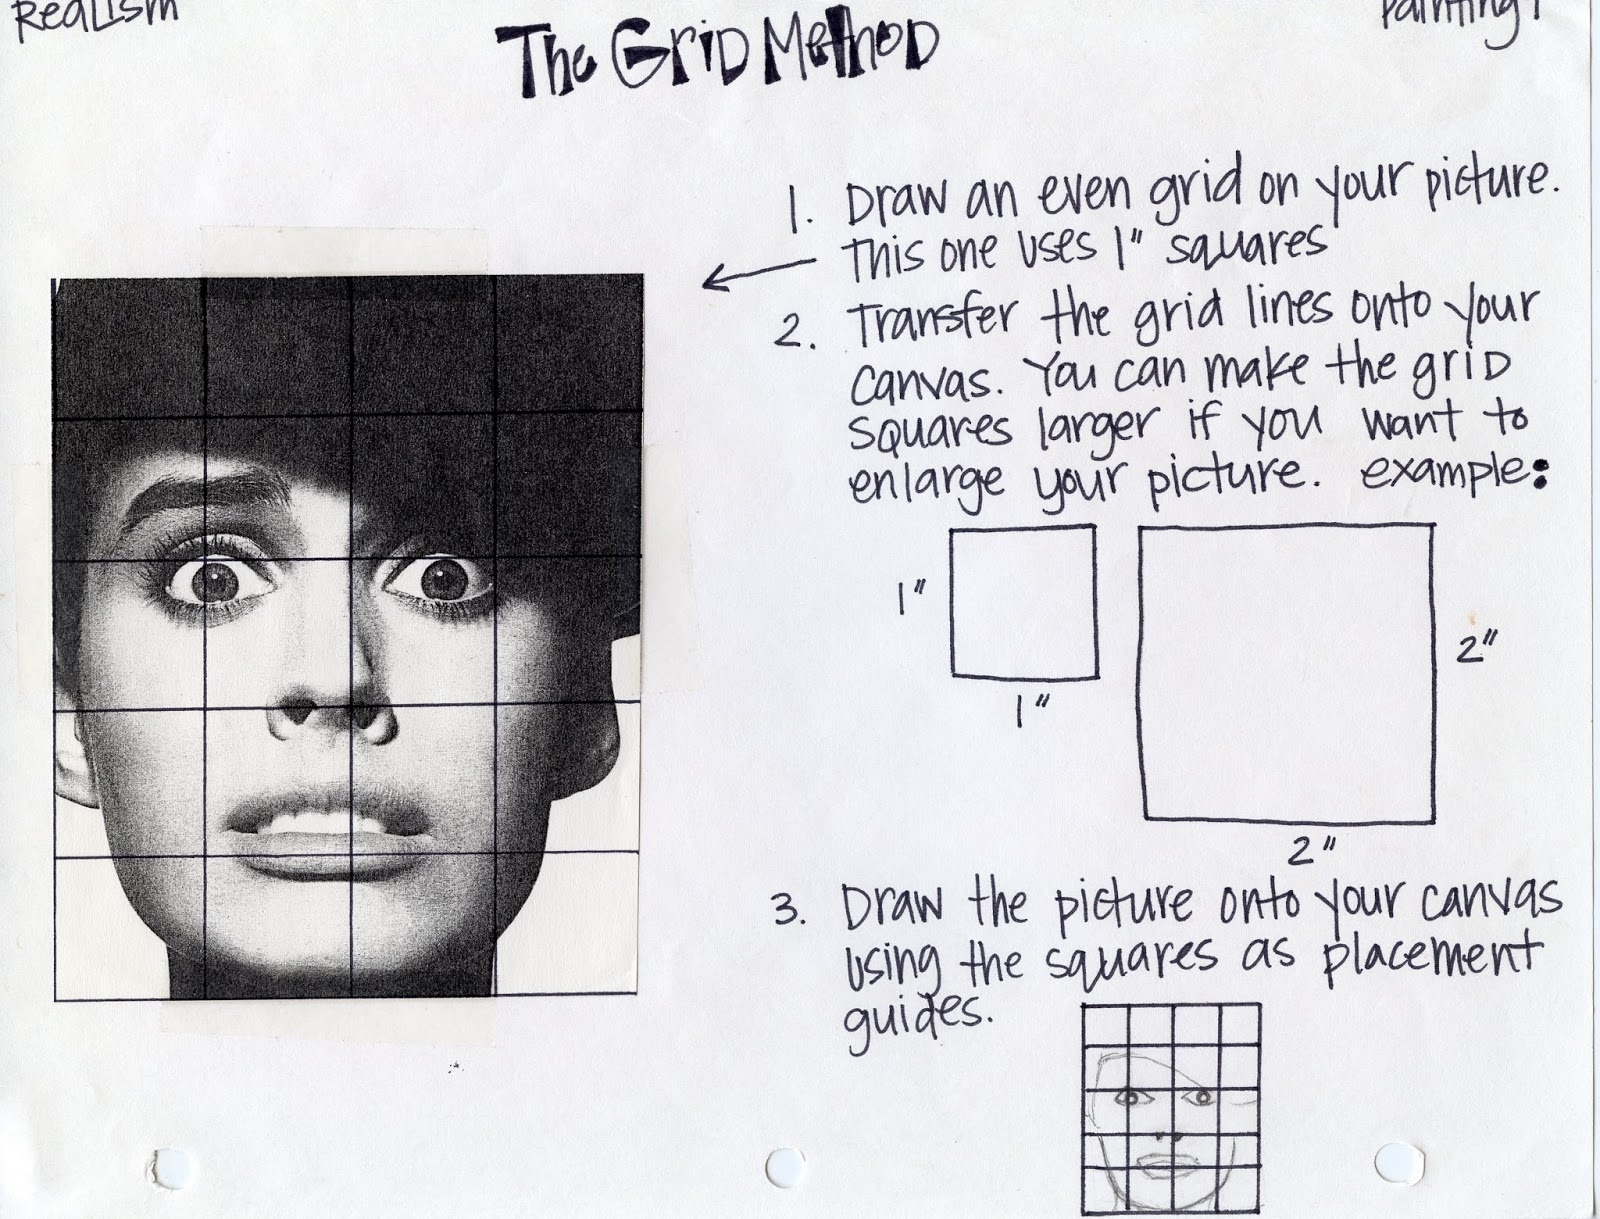 Realism
Painting 1
The Grid Method
1. Draw an even grid on your picture.
This one uses 1" squares
2. Transfer the grid lines onto your
canvas. You can make the grid
squares larger if you want to
enlarge your picture. example:
1"
1"
2"
2"
3. Draw the picture onto your canvas
using the squares as placement
guides.